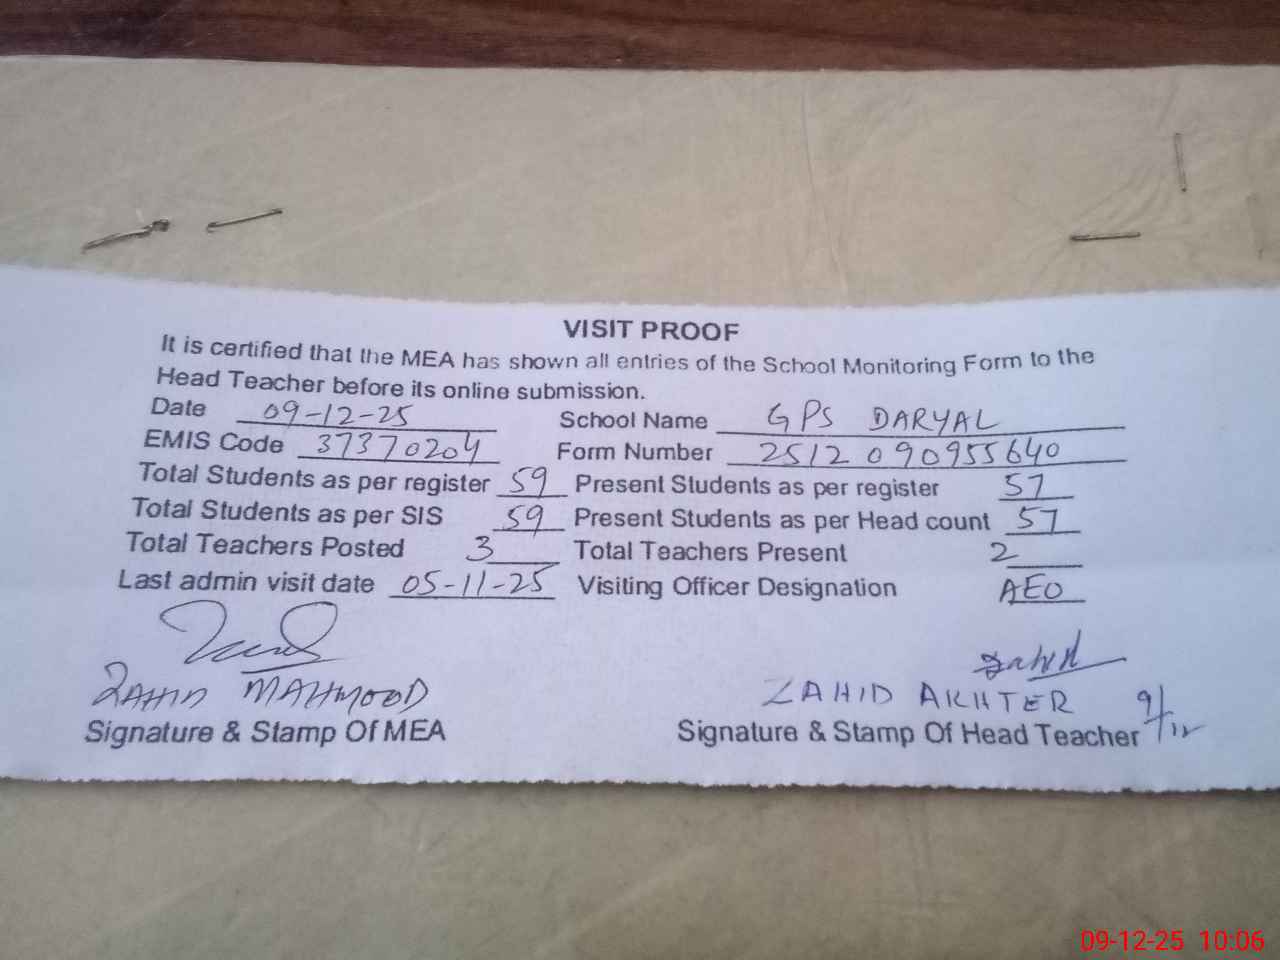 VISIT PROOF
It is certified that the MEA has shown all entries of the School Monitoring Form to the
Head Teacher before its online submission.
Date 09-12-25 School Name GPS DARYAL
EMIS Code 37370204 Form Number 2512090955640
Total Students as per register 59 Present Students as per register 57
Total Students as per SIS 59 Present Students as per Head count 57
Total Teachers Posted 3 Total Teachers Present 2
Last admin visit date 05-11-25 Visiting Officer Designation AEO
Zahid
ZAHID MAHMOOD ZAHID AKHTER 9/12
Signature & Stamp Of MEA Signature & Stamp Of Head Teacher
09-12-25 10:06